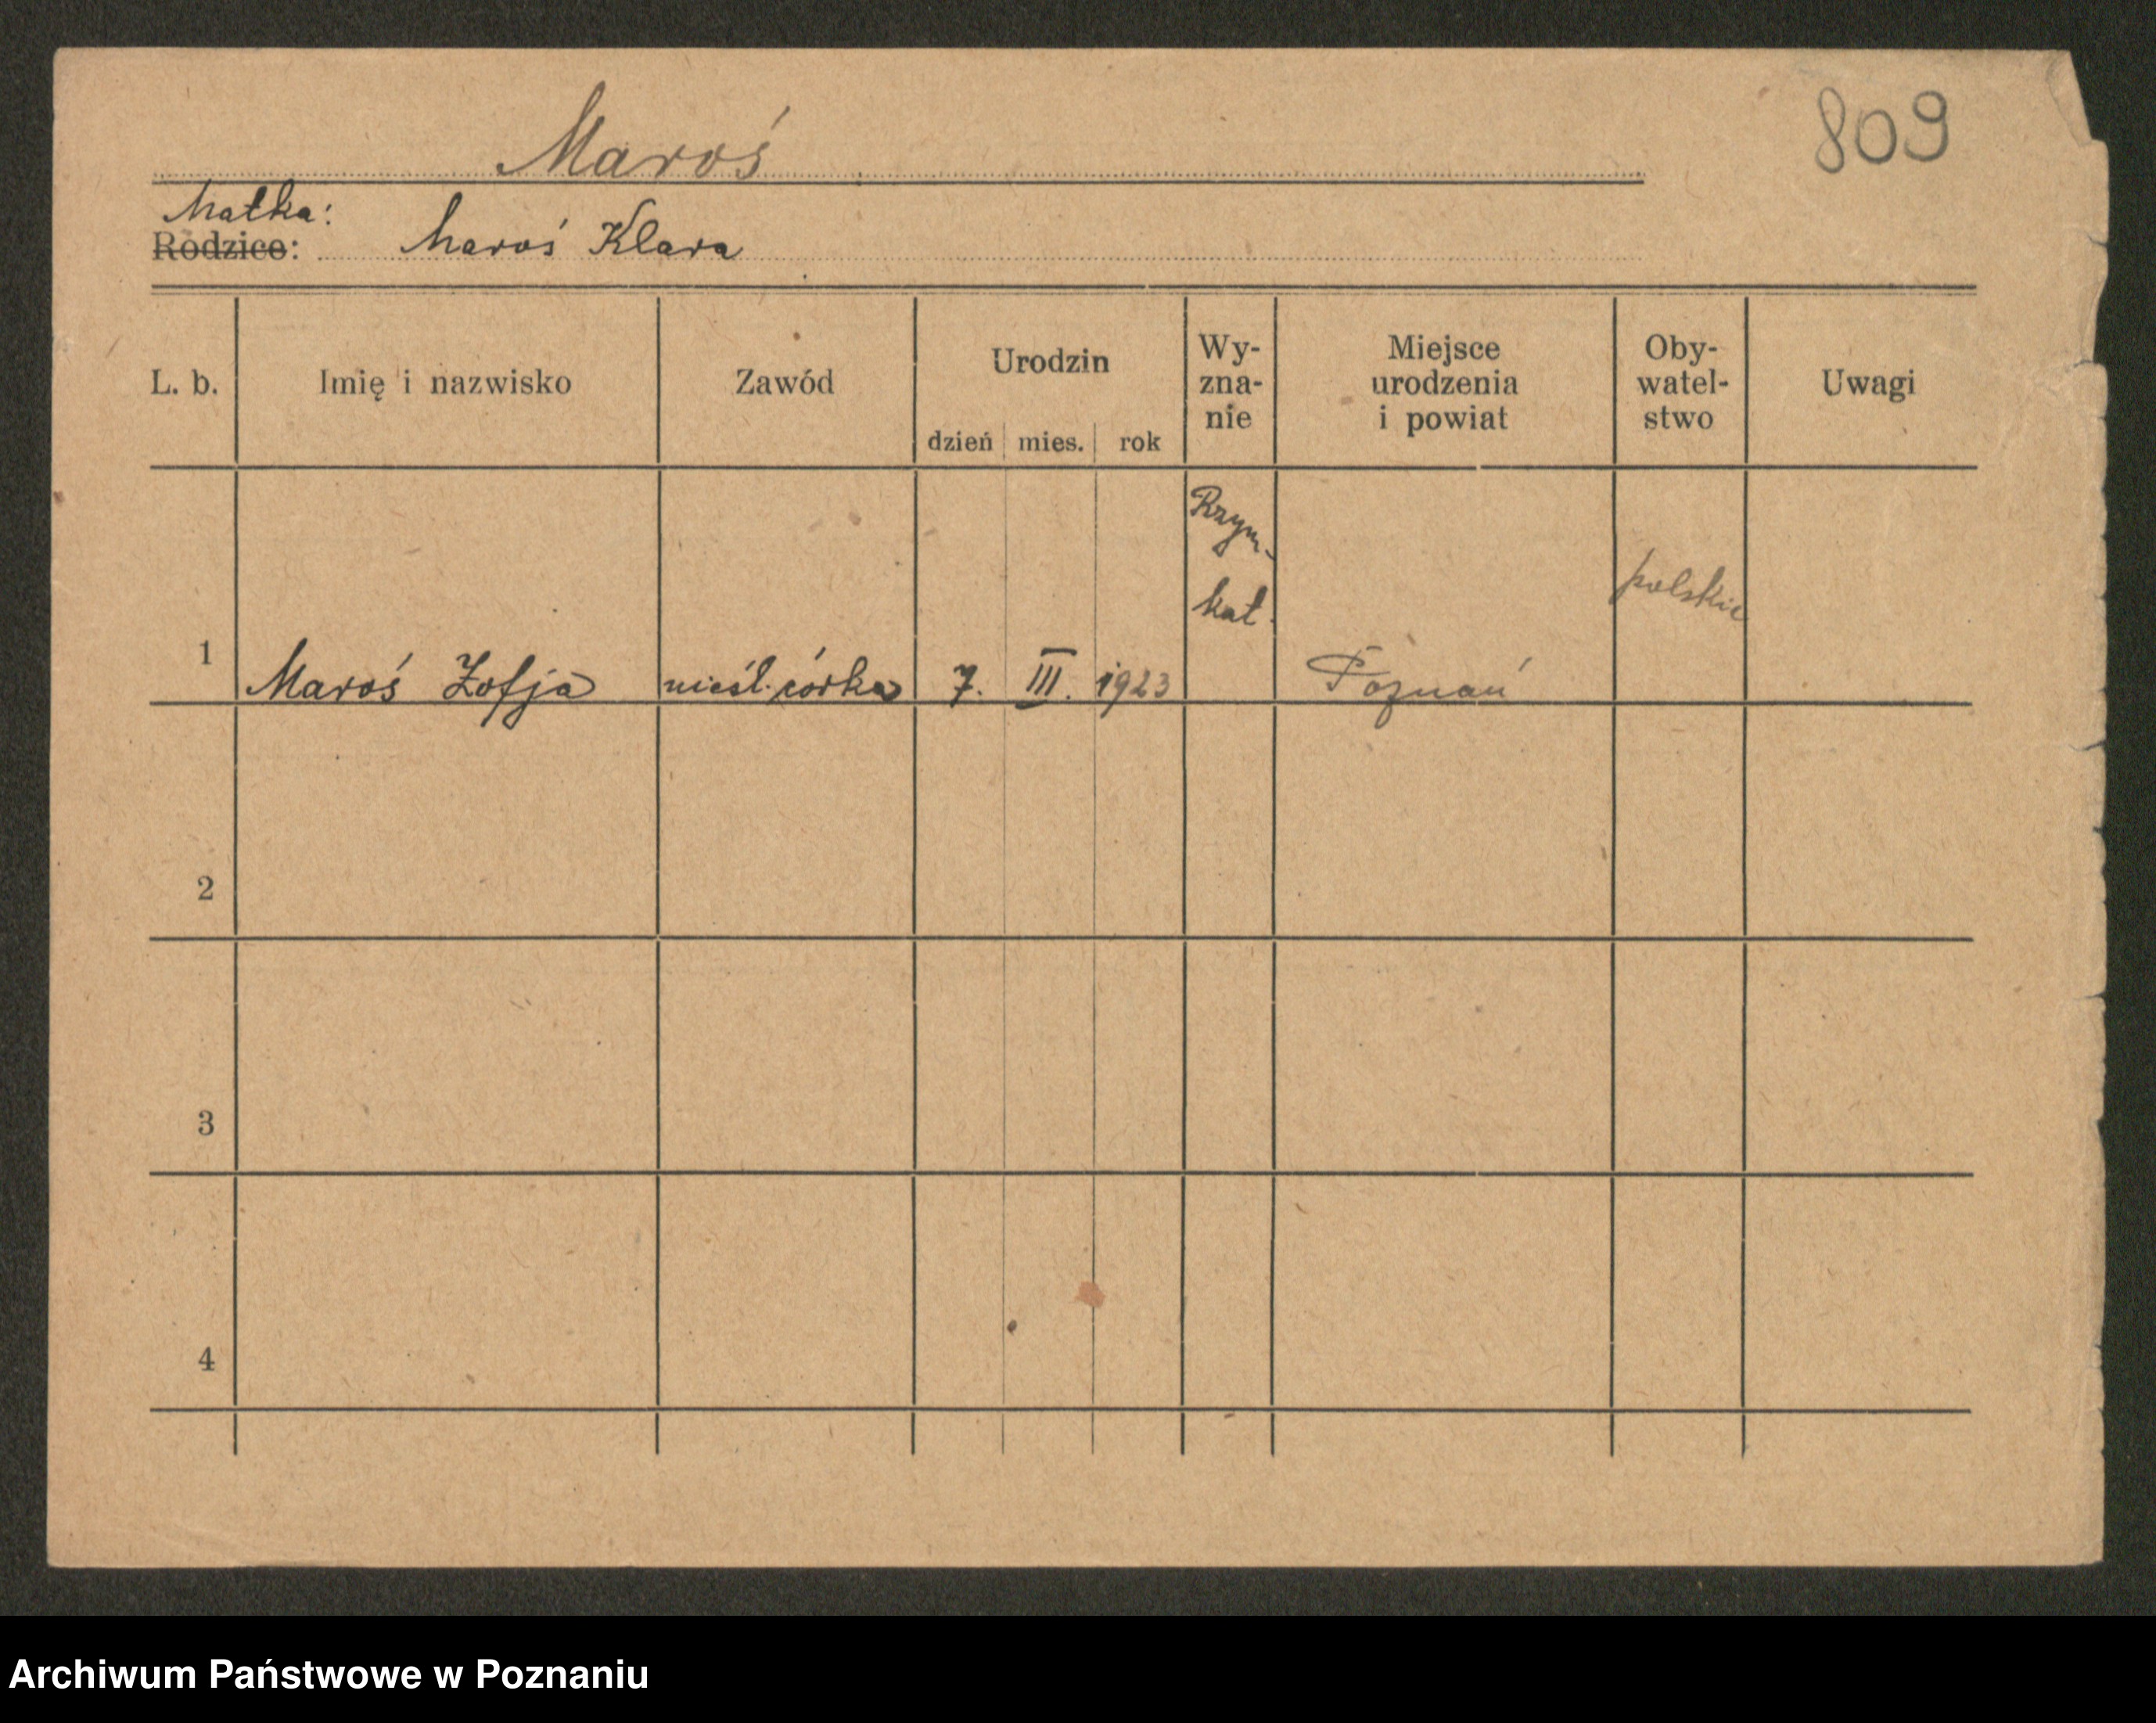 809
Maroś
Matka:
Rodzice: Maroś Klara
L. b. Imię i nazwisko Zawód Urodzin dzień mies. rok Wy-zna-nie Miejsce urodzenia i powiat Oby-watel-stwo Uwagi
1 Maroś Zofja nieśl. córka 7. III. 1923 Rzym. kat. Poznań polskie
2
3
4
Archiwum Państwowe w Poznaniu